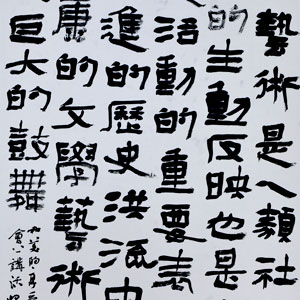 藝術是人類社
的生動反映也是
活動的重要表
進的歷史洪流
康的文學藝術
巨大的鼓舞